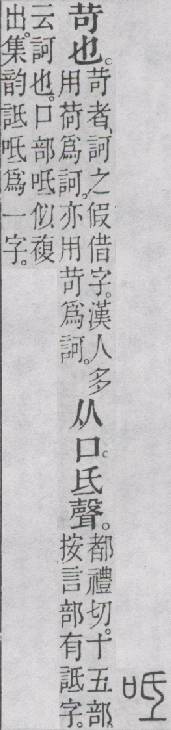 呧
苛也。
苛者、訶之假借字。漢人多
用荷爲訶。亦用苛爲訶。
从口。氐聲。
都禮切。十五部。
按言部有詆字。
云訶也。口部呧似複
出。集韵詆呧爲一字。